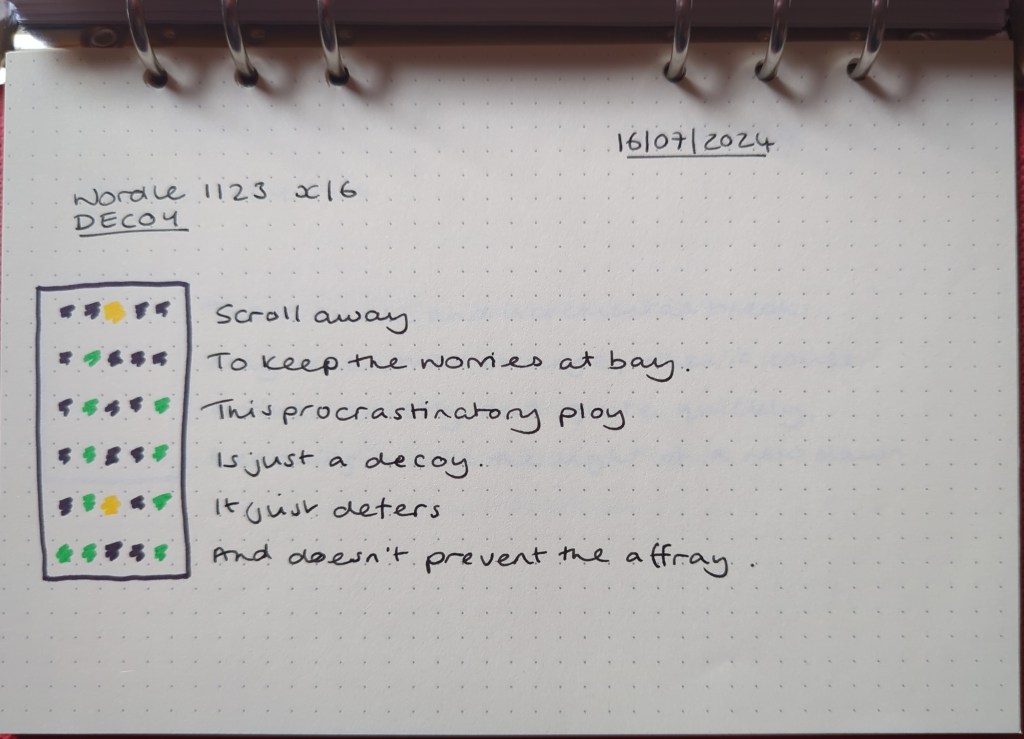 16/07/2024
Wordle 1123 x/6
DECOY
Scroll away
To keep the worries at bay.
This procrastinatory ploy
Is just a decoy.
It just deters
And doesn't prevent the affray.